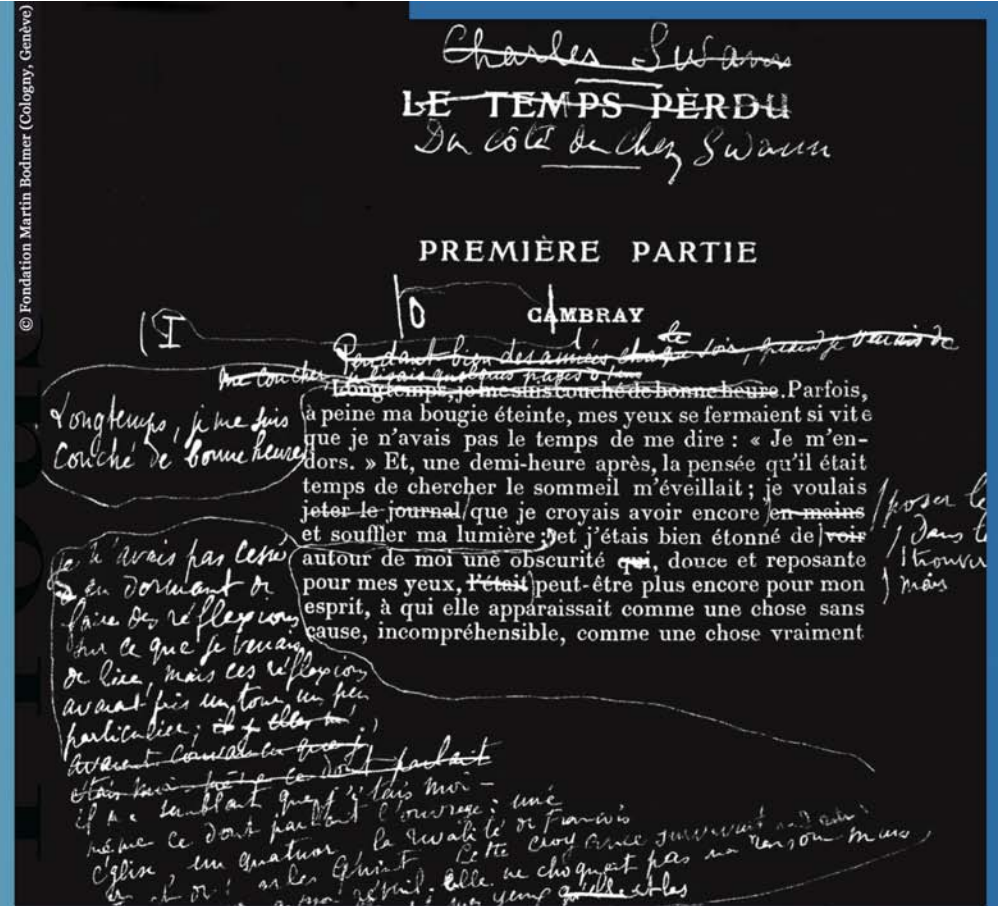 © Fondation Martin Bodmer (Cologny, Genève)
Charles Swann
LE TEMPS PERDU
Du côté de chez Swann
PREMIÈRE PARTIE
I
CAMBRAY
Pendant bien des années, chaque soir, quand je venais de
me coucher, je lisais quelques pages
Longtemps, je me suis couché de bonne heure. Parfois,
à peine ma bougie éteinte, mes yeux se fermaient si vite
que je n'avais pas le temps de me dire : « Je m'en-
dors. » Et, une demi-heure après, la pensée qu'il était
temps de chercher le sommeil m'éveillait ; je voulais
jeter le journal que je croyais avoir encore en mains
et souffler ma lumière ; et j'étais bien étonné de voir
autour de moi une obscurité qui, douce et reposante
pour mes yeux, l'était peut-être plus encore pour mon
esprit, à qui elle apparaissait comme une chose sans
cause, incompréhensible, comme une chose vraiment
Longtemps, je me suis
couché de bonne heure
poser le
dans
trouver
mais
je n'avais pas cessé
en dormant de
faire des réflexions
sur ce que je venais
de lire, mais ces réflexions
avaient pris un tour un peu
particulier ;
avaient que
ce dont parlait
il me semblait que j'étais moi-
même ce dont parlait l'ouvrage : une
église, un quatuor, la rivalité de François
Cette croyance survivait
elle ne choquait pas ma raison mais
yeux